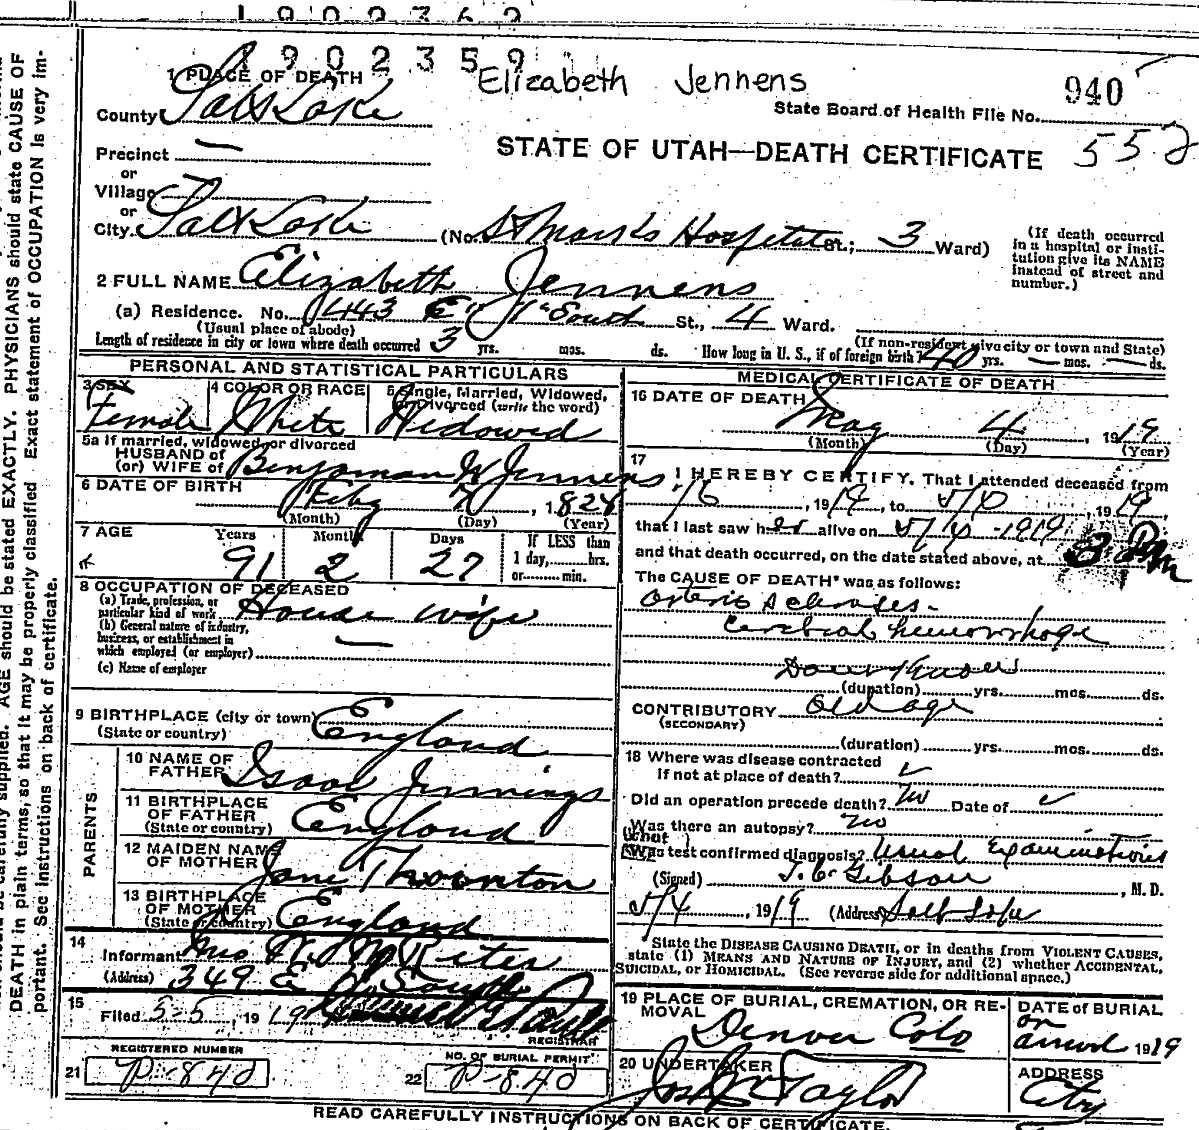 1902362
1902359
Elizabeth Jennens
940
1 PLACE OF DEATH
State Board of Health File No.
552
County Salt Lake
STATE OF UTAH—DEATH CERTIFICATE
Precinct —
or
Village —
or
City. Salt Lake (No. St Marks Hospital St.; 3 Ward)
(If death occurred
in a hospital or insti-
tution give its NAME
instead of street and
number.)
2 FULL NAME Elizabeth Jennens
(a) Residence. No. 443 E South St., 4 Ward.
(Usual place of abode)
(If non-resident give city or town and State)
Length of residence in city or town where death occurred 3 yrs. mos. ds. How long in U. S., if of foreign birth? 40 yrs. — mos. — ds.
PERSONAL AND STATISTICAL PARTICULARS
3 SEX
Female
4 COLOR OR RACE
White
5 Single, Married, Widowed,
or Divorced (write the word)
Widowed
5a If married, widowed or divorced
HUSBAND of
(or) WIFE of Benjaman W Jennens
6 DATE OF BIRTH
Feby 7, 1828
(Month) (Day) (Year)
7 AGE Years Months Days If LESS than
1 day, hrs.
or min.
91 2 27
8 OCCUPATION OF DECEASED
(a) Trade, profession, or
particular kind of work House wife
(b) General nature of industry,
business, or establishment in
which employed (or employer) —
(c) Name of employer
9 BIRTHPLACE (city or town)
(State or country) England
PARENTS
10 NAME OF
FATHER Isaac Jennings
11 BIRTHPLACE
OF FATHER
(State or country) England
12 MAIDEN NAME
OF MOTHER Jane Thornton
13 BIRTHPLACE
OF MOTHER
(State or country) England
14
Informant Mrs
(Address) 349 E South
15
Filed 5-5, 1919
REGISTRAR
REGISTERED NUMBER
21 P-840
NO. OF BURIAL PERMIT
22 P-840
MEDICAL CERTIFICATE OF DEATH
16 DATE OF DEATH
May 4, 1919
(Month) (Day) (Year)
17
I HEREBY CERTIFY, That I attended deceased from
, 1919, to , 1919,
that I last saw her alive on 5/4 - 1919
and that death occurred, on the date stated above, at 3 Pm
The CAUSE OF DEATH* was as follows:
Arterio Sclerosis -
Cerebral hemorrhage
(duration) yrs. mos. ds.
CONTRIBUTORY Old age
(SECONDARY)
(duration) yrs. mos. ds.
18 Where was disease contracted
if not at place of death?
Did an operation precede death? No Date of
Was there an autopsy? No
What
Was test confirmed diagnosis? Usual Examinations
(Signed) Gibson, M. D.
5/4, 1919 (Address) Salt Lake
State the DISEASE CAUSING DEATH, or in deaths from VIOLENT CAUSES,
state (1) MEANS AND NATURE OF INJURY, and (2) whether ACCIDENTAL,
SUICIDAL, or HOMICIDAL. (See reverse side for additional space.)
19 PLACE OF BURIAL, CREMATION, OR RE-
MOVAL
Denver Colo
DATE OF BURIAL
on
arrival 1919
20 UNDERTAKER
Taylor
ADDRESS
City
READ CAREFULLY INSTRUCTIONS ON BACK OF CERTIFICATE.
AGE should be stated EXACTLY. PHYSICIANS should state CAUSE OF
DEATH in plain terms, so that it may be properly classified. Exact statement of OCCUPATION is very im-
portant. See instructions on back of certificate.